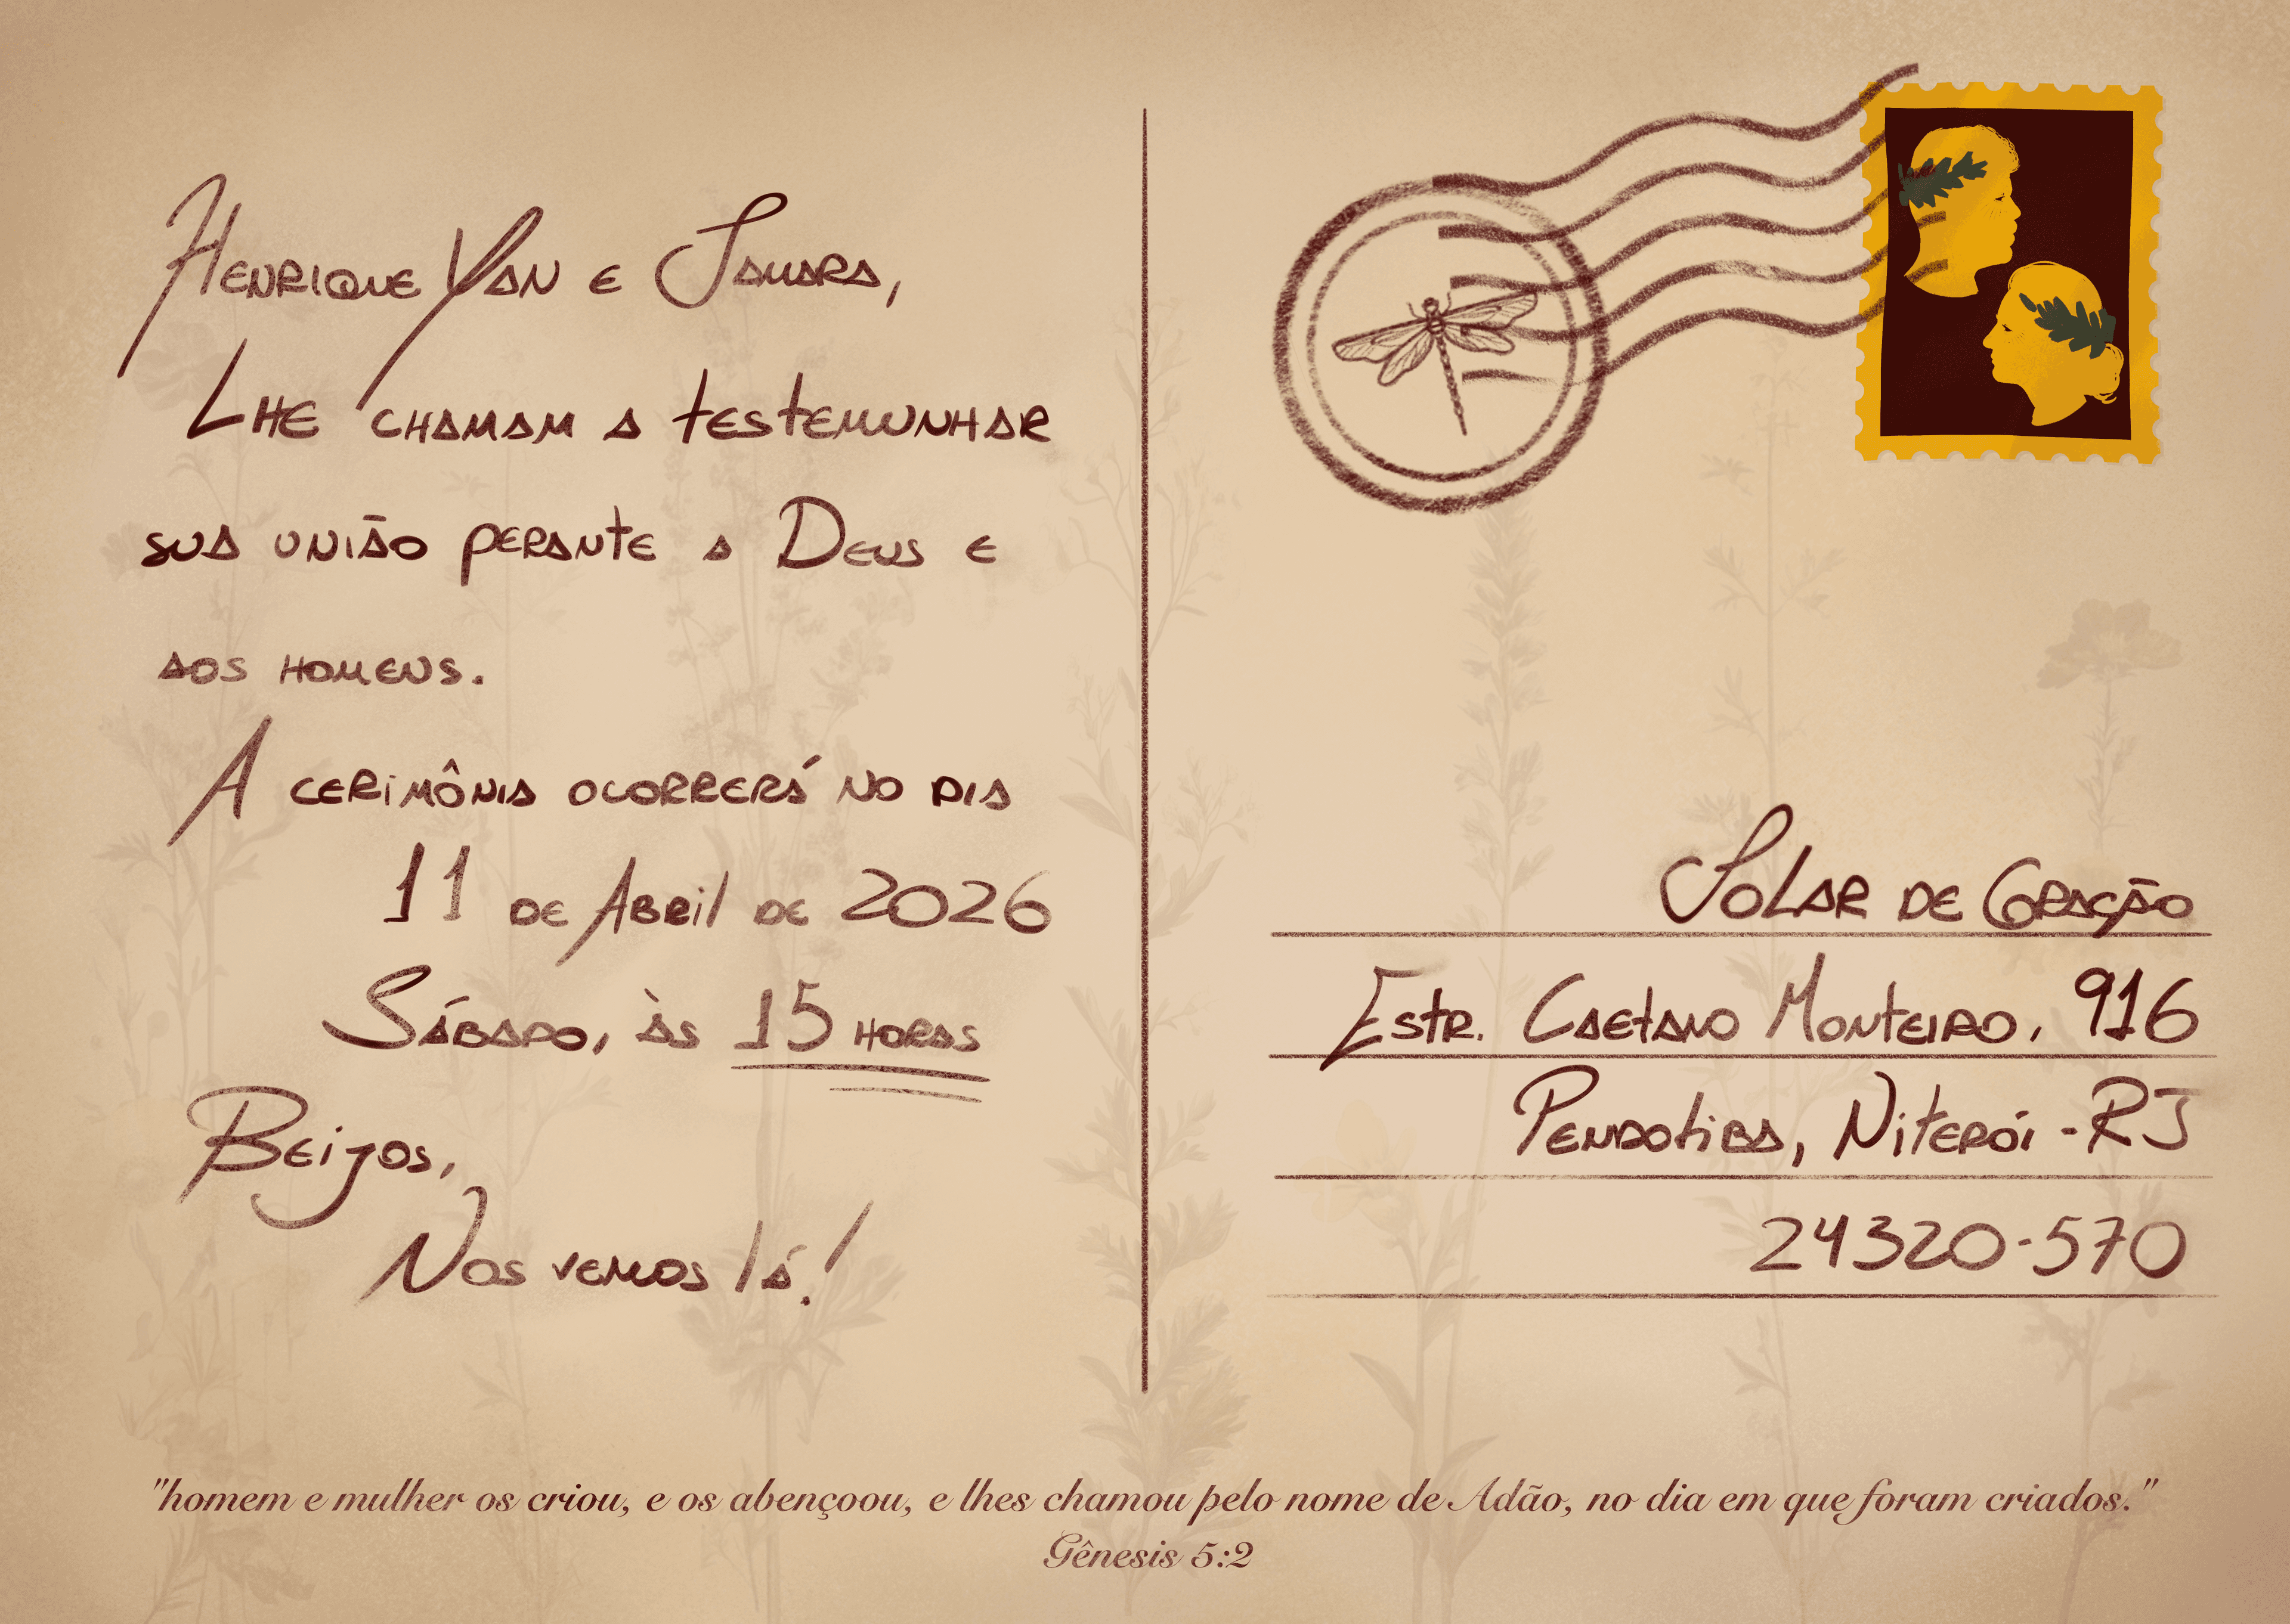 Henrique Yan e Samara,
Lhe chamam a testemunhar
sua união perante a Deus e
aos homens.
A cerimônia ocorrerá no dia
11 de Abril de 2026
Sábado, às 15 horas
Beijos,
Nos vemos lá!
Solar de Coração
Estr. Caetano Monteiro, 916
Pendotiba, Niterói - RJ
24320-570
"homem e mulher os criou, e os abençoou, e lhes chamou pelo nome de Adão, no dia em que foram criados."
Gênesis 5:2